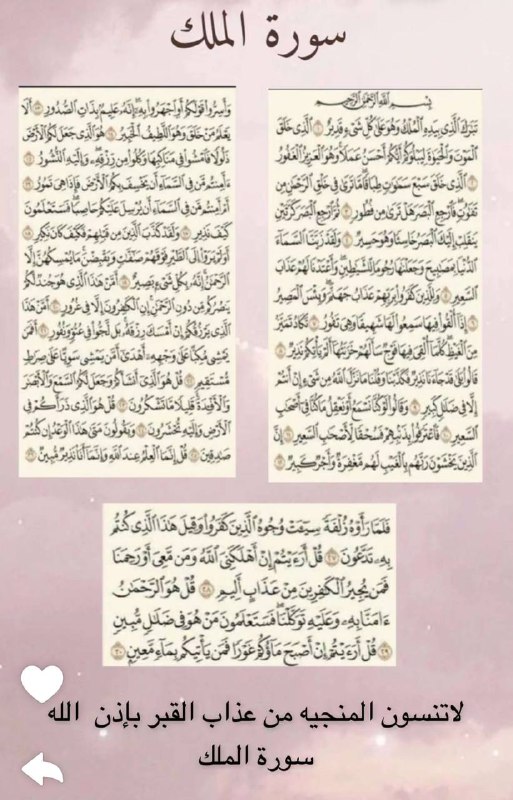 سورة الملك
بِسْمِ اللَّهِ الرَّحْمَٰنِ الرَّحِيمِ
تَبَٰرَكَ الَّذِي بِيَدِهِ الْمُلْكُ وَهُوَ عَلَىٰ كُلِّ شَيْءٍ قَدِيرٌ ١ الَّذِي خَلَقَ
الْمَوْتَ وَالْحَيَوٰةَ لِيَبْلُوَكُمْ أَيُّكُمْ أَحْسَنُ عَمَلًا وَهُوَ الْعَزِيزُ الْغَفُورُ
٢ الَّذِي خَلَقَ سَبْعَ سَمَٰوَٰتٍ طِبَاقًا مَّا تَرَىٰ فِي خَلْقِ الرَّحْمَٰنِ مِن
تَفَٰوُتٍ فَارْجِعِ الْبَصَرَ هَلْ تَرَىٰ مِن فُطُورٍ ٣ ثُمَّ ارْجِعِ الْبَصَرَ كَرَّتَيْنِ
يَنقَلِبْ إِلَيْكَ الْبَصَرُ خَاسِئًا وَهُوَ حَسِيرٌ ٤ وَلَقَدْ زَيَّنَّا السَّمَاءَ
الدُّنْيَا بِمَصَٰبِيحَ وَجَعَلْنَٰهَا رُجُومًا لِّلشَّيَٰطِينِ وَأَعْتَدْنَا لَهُمْ عَذَابَ
السَّعِيرِ ٥ وَلِلَّذِينَ كَفَرُوا بِرَبِّهِمْ عَذَابُ جَهَنَّمَ وَبِئْسَ الْمَصِيرُ
٦ إِذَا أُلْقُوا فِيهَا سَمِعُوا لَهَا شَهِيقًا وَهِيَ تَفُورُ ٧ تَكَادُ تَمَيَّزُ
مِنَ الْغَيْظِ كُلَّمَا أُلْقِيَ فِيهَا فَوْجٌ سَأَلَهُمْ خَزَنَتُهَا أَلَمْ يَأْتِكُمْ نَذِيرٌ ٨
قَالُوا بَلَىٰ قَدْ جَاءَنَا نَذِيرٌ فَكَذَّبْنَا وَقُلْنَا مَا نَزَّلَ اللَّهُ مِن شَيْءٍ إِنْ أَنتُمْ
إِلَّا فِي ضَلَٰلٍ كَبِيرٍ ٩ وَقَالُوا لَوْ كُنَّا نَسْمَعُ أَوْ نَعْقِلُ مَا كُنَّا فِي أَصْحَٰبِ
السَّعِيرِ ١٠ فَاعْتَرَفُوا بِذَنبِهِمْ فَسُحْقًا لِّأَصْحَٰبِ السَّعِيرِ ١١ إِنَّ
الَّذِينَ يَخْشَوْنَ رَبَّهُم بِالْغَيْبِ لَهُم مَّغْفِرَةٌ وَأَجْرٌ كَبِيرٌ ١٢
وَأَسِرُّوا قَوْلَكُمْ أَوِ اجْهَرُوا بِهِ إِنَّهُ عَلِيمٌ بِذَاتِ الصُّدُورِ ١٣ أَلَا
يَعْلَمُ مَنْ خَلَقَ وَهُوَ اللَّطِيفُ الْخَبِيرُ ١٤ هُوَ الَّذِي جَعَلَ لَكُمُ الْأَرْضَ
ذَلُولًا فَامْشُوا فِي مَنَاكِبِهَا وَكُلُوا مِن رِّزْقِهِ وَإِلَيْهِ النُّشُورُ ١٥
ءَأَمِنتُم مَّن فِي السَّمَاءِ أَن يَخْسِفَ بِكُمُ الْأَرْضَ فَإِذَا هِيَ تَمُورُ ١٦
أَمْ أَمِنتُم مَّن فِي السَّمَاءِ أَن يُرْسِلَ عَلَيْكُمْ حَاصِبًا فَسَتَعْلَمُونَ
كَيْفَ نَذِيرِ ١٧ وَلَقَدْ كَذَّبَ الَّذِينَ مِن قَبْلِهِمْ فَكَيْفَ كَانَ نَكِيرِ ١٨
أَوَلَمْ يَرَوْا إِلَى الطَّيْرِ فَوْقَهُمْ صَٰفَّٰتٍ وَيَقْبِضْنَ مَا يُمْسِكُهُنَّ إِلَّا
الرَّحْمَٰنُ إِنَّهُ بِكُلِّ شَيْءٍ بَصِيرٌ ١٩ أَمَّنْ هَٰذَا الَّذِي هُوَ جُندٌ لَّكُمْ
يَنصُرُكُم مِّن دُونِ الرَّحْمَٰنِ إِنِ الْكَٰفِرُونَ إِلَّا فِي غُرُورٍ ٢٠ أَمَّنْ هَٰذَا
الَّذِي يَرْزُقُكُمْ إِنْ أَمْسَكَ رِزْقَهُ بَل لَّجُّوا فِي عُتُوٍّ وَنُفُورٍ ٢١ أَفَمَن
يَمْشِي مُكِبًّا عَلَىٰ وَجْهِهِ أَهْدَىٰ أَمَّن يَمْشِي سَوِيًّا عَلَىٰ صِرَٰطٍ
مُّسْتَقِيمٍ ٢٢ قُلْ هُوَ الَّذِي أَنشَأَكُمْ وَجَعَلَ لَكُمُ السَّمْعَ وَالْأَبْصَٰرَ
وَالْأَفْـِٔدَةَ قَلِيلًا مَّا تَشْكُرُونَ ٢٣ قُلْ هُوَ الَّذِي ذَرَأَكُمْ فِي
الْأَرْضِ وَإِلَيْهِ تُحْشَرُونَ ٢٤ وَيَقُولُونَ مَتَىٰ هَٰذَا الْوَعْدُ إِن كُنتُمْ
صَٰدِقِينَ ٢٥ قُلْ إِنَّمَا الْعِلْمُ عِندَ اللَّهِ وَإِنَّمَا أَنَا نَذِيرٌ مُّبِينٌ ٢٦
فَلَمَّا رَأَوْهُ زُلْفَةً سِيـَٔتْ وُجُوهُ الَّذِينَ كَفَرُوا وَقِيلَ هَٰذَا الَّذِي كُنتُم
بِهِ تَدَّعُونَ ٢٧ قُلْ أَرَءَيْتُمْ إِنْ أَهْلَكَنِيَ اللَّهُ وَمَن مَّعِيَ أَوْ رَحِمَنَا
فَمَن يُجِيرُ الْكَٰفِرِينَ مِنْ عَذَابٍ أَلِيمٍ ٢٨ قُلْ هُوَ الرَّحْمَٰنُ
ءَامَنَّا بِهِ وَعَلَيْهِ تَوَكَّلْنَا فَسَتَعْلَمُونَ مَنْ هُوَ فِي ضَلَٰلٍ مُّبِينٍ
٢٩ قُلْ أَرَءَيْتُمْ إِنْ أَصْبَحَ مَاؤُكُمْ غَوْرًا فَمَن يَأْتِيكُم بِمَاءٍ مَّعِينٍ ٣٠
لاتنسون المنجيه من عذاب القبر بإذن الله
سورة الملك